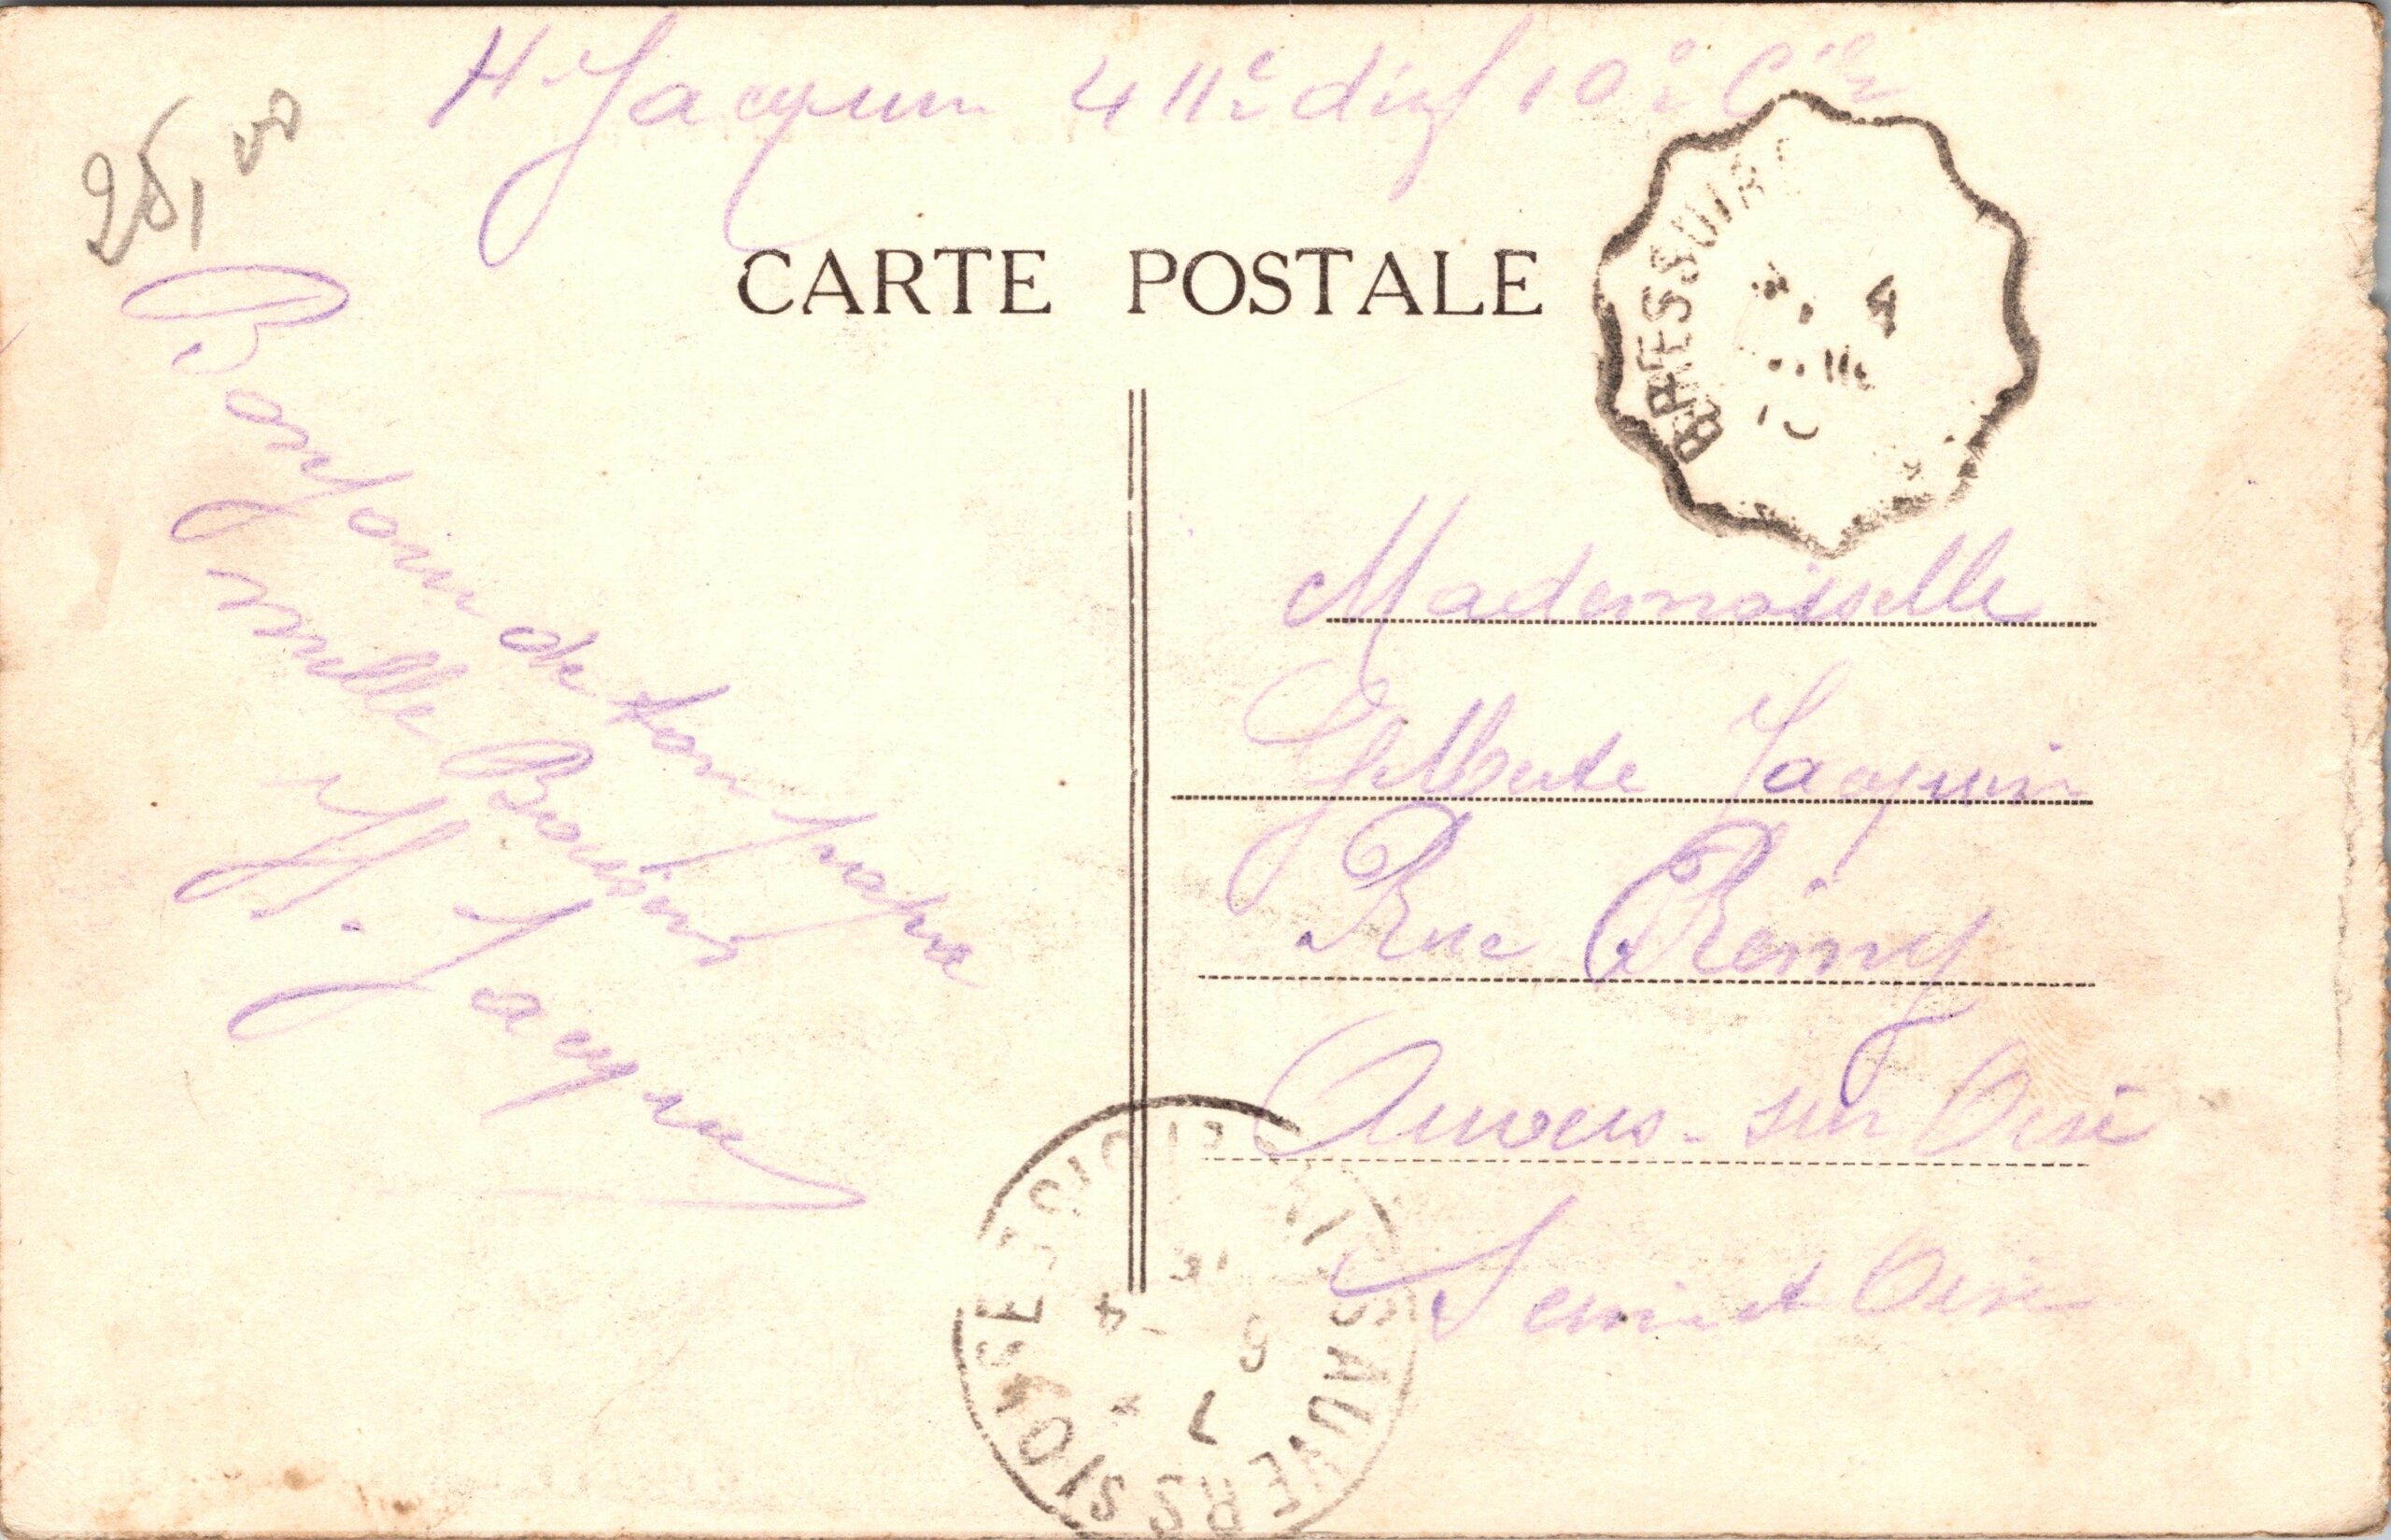 25,00
H. Jacquin 411e d'inf 10e Cie
CARTE POSTALE
BRESSUIRE
Bonjour de ton frère
mille Baisers
H. Jacquin
Mademoiselle
Gilberte Jacquin
Rue Rémy
Auvers-sur Oise
Seine et Oise
AUVERS S OISE
SEINE ET OISE